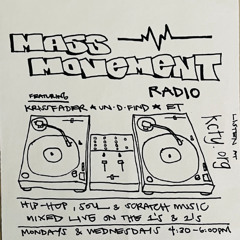 MASS
MOVEMENT
RADIO
FEATURING
KRISSFADER ★ UN•D•FIND ★ ET
LISTEN AT
kcfy.org
HIP-HOP, SOUL & SCRATCH MUSIC
MIXED LIVE ON THE 1'S & 2'S
MONDAYS & WEDNESDAYS 4:30-6:00PM